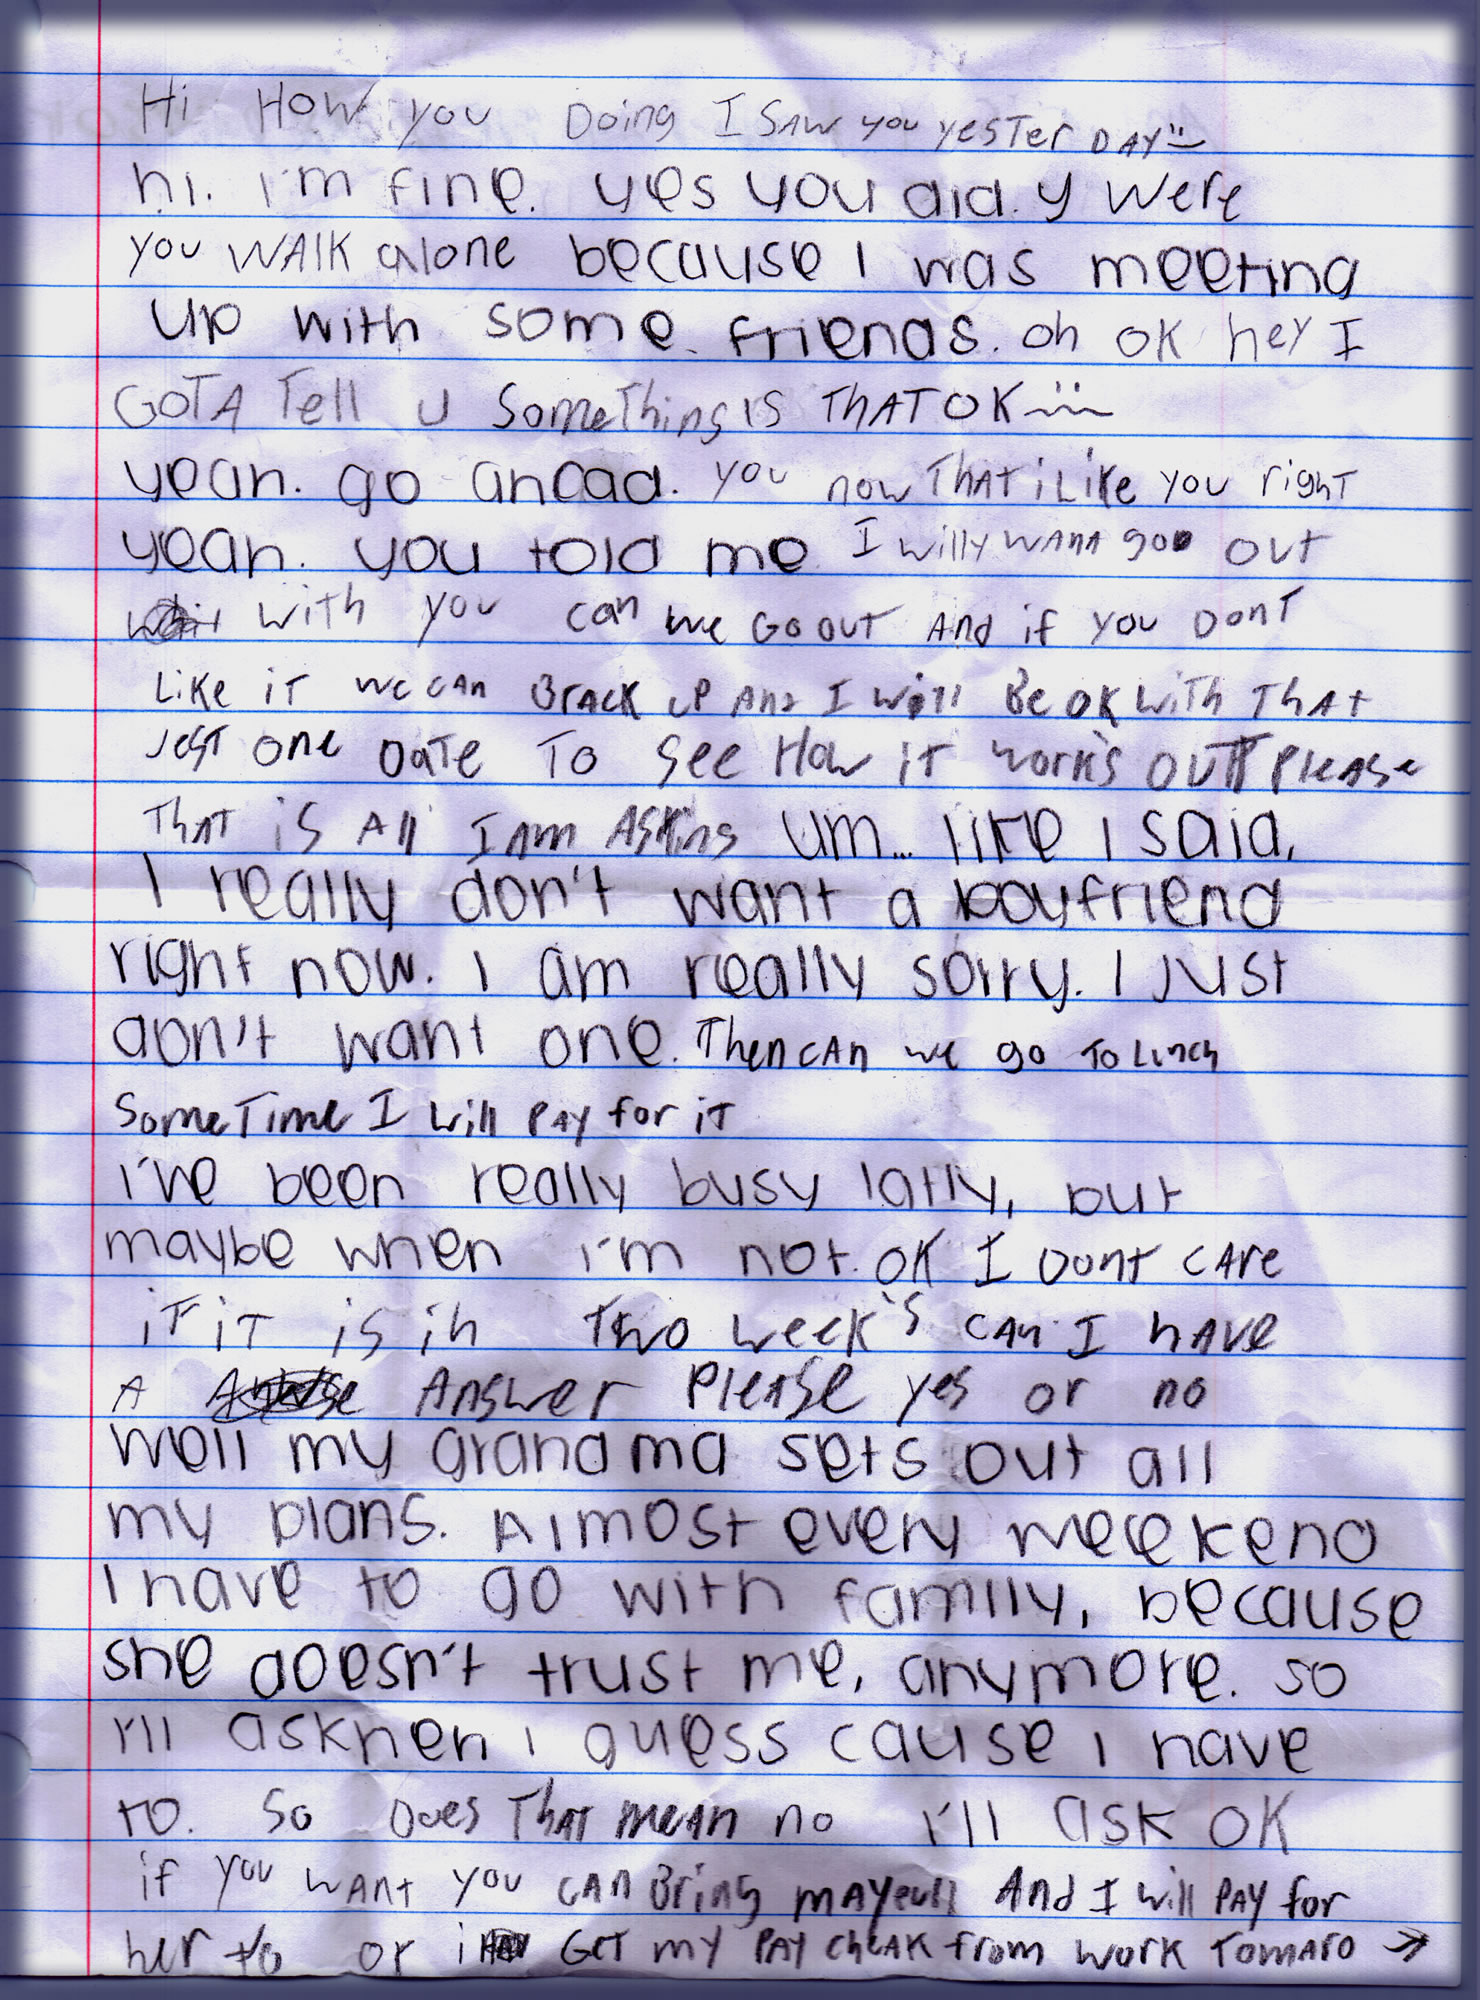 Hi How you Doing I SAw you yesTer DAY
hi. i'm fine. yes you did. y were
you WAlK alone because I was meeting
up with some friends. oh OK hey I
GOTA Tell U SomeThing IS THAT OK
yeah. go ahead. you now THAT i LiKe you righT
yeah. you told me I willy wAnA go out
with you can we GO OUT And if you DonT
LiKe iT we cAn BrAcK uP And I will Be OK WiTh ThAt
JesT one DaTe To See How iT work's OUT PleASe
ThAT iS All I Am ASking um... like I said,
I really don't want a boyfriend
right now. I am really sorry. I just
don't want one. Then cAn we go To Lunch
SomeTime I will PAY for iT
i've been really busy latly, but
maybe when i'm not. OK I DonT cAre
if iT iS in Two week's cAn I hAve
A AnSwer PleASe yes or no
well my grandma sets out all
my plans. Almost every weekend
I have to go with family, because
she doesn't trust me, anymore. so
i'll ask her, i guess cause i have
to. So Does ThAT meAn no i'll ask OK
if you wAnt you cAn Bring And I will PAY for
her to or i GeT my PAY cheAK from work TomAro